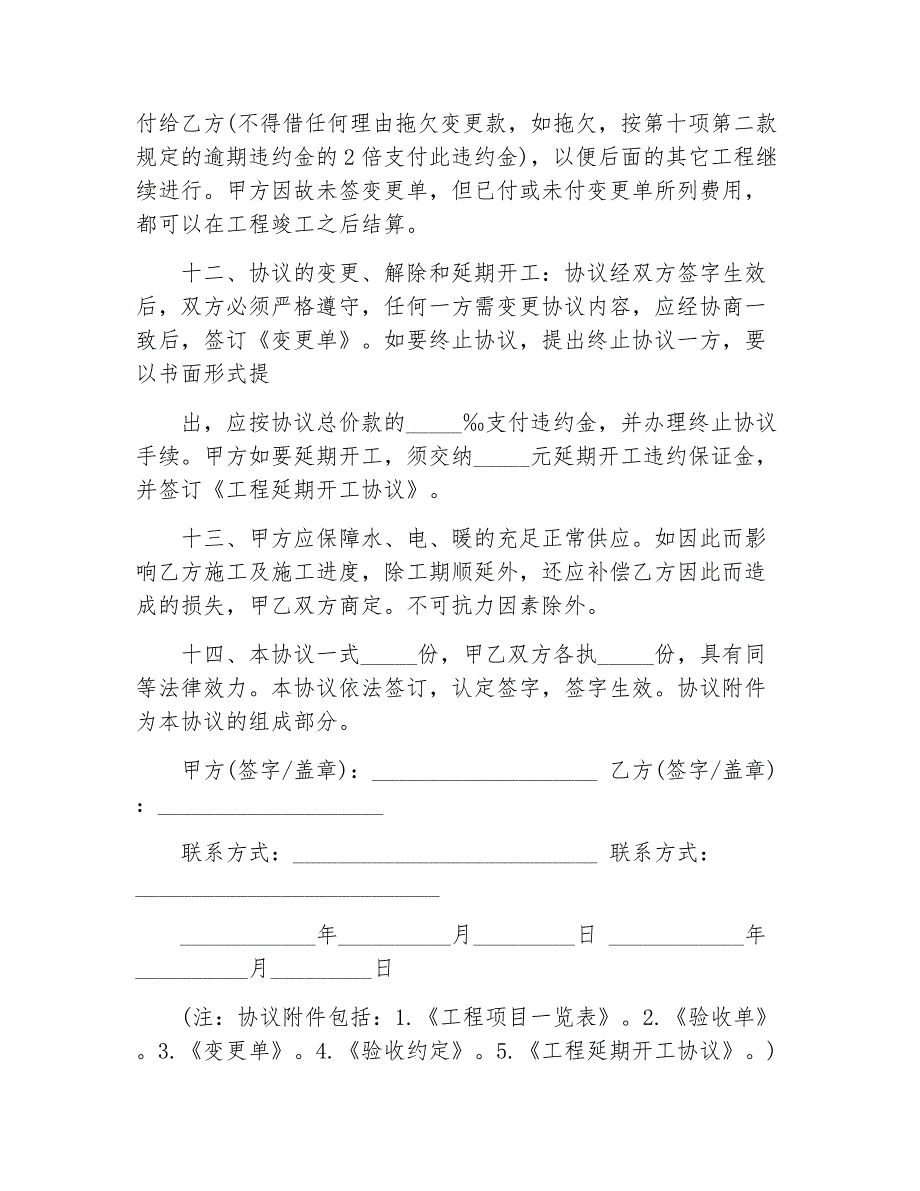 付给乙方(不得借任何理由拖欠变更款，如拖欠，按第十项第二款
规定的逾期违约金的2倍支付此违约金)，以便后面的其它工程继
续进行。甲方因故未签变更单，但已付或未付变更单所列费用，
都可以在工程竣工之后结算。
十二、协议的变更、解除和延期开工：协议经双方签字生效
后，双方必须严格遵守，任何一方需变更协议内容，应经协商一
致后，签订《变更单》。如要终止协议，提出终止协议一方，要
以书面形式提
出，应按协议总价款的_____‰支付违约金，并办理终止协议
手续。甲方如要延期开工，须交纳_____元延期开工违约保证金，
并签订《工程延期开工协议》。
十三、甲方应保障水、电、暖的充足正常供应。如因此而影
响乙方施工及施工进度，除工期顺延外，还应补偿乙方因此而造
成的损失，甲乙双方商定。不可抗力因素除外。
十四、本协议一式_____份，甲乙双方各执_____份，具有同
等法律效力。本协议依法签订，认定签字，签字生效。协议附件
为本协议的组成部分。
甲方(签字/盖章)：____________________ 乙方(签字/盖章)
：____________________
联系方式：___________________________ 联系方式：
___________________________
____________年__________月_________日 ____________年
__________月_________日
(注：协议附件包括：1.《工程项目一览表》。2.《验收单》
。3.《变更单》。4.《验收约定》。5.《工程延期开工协议》。)